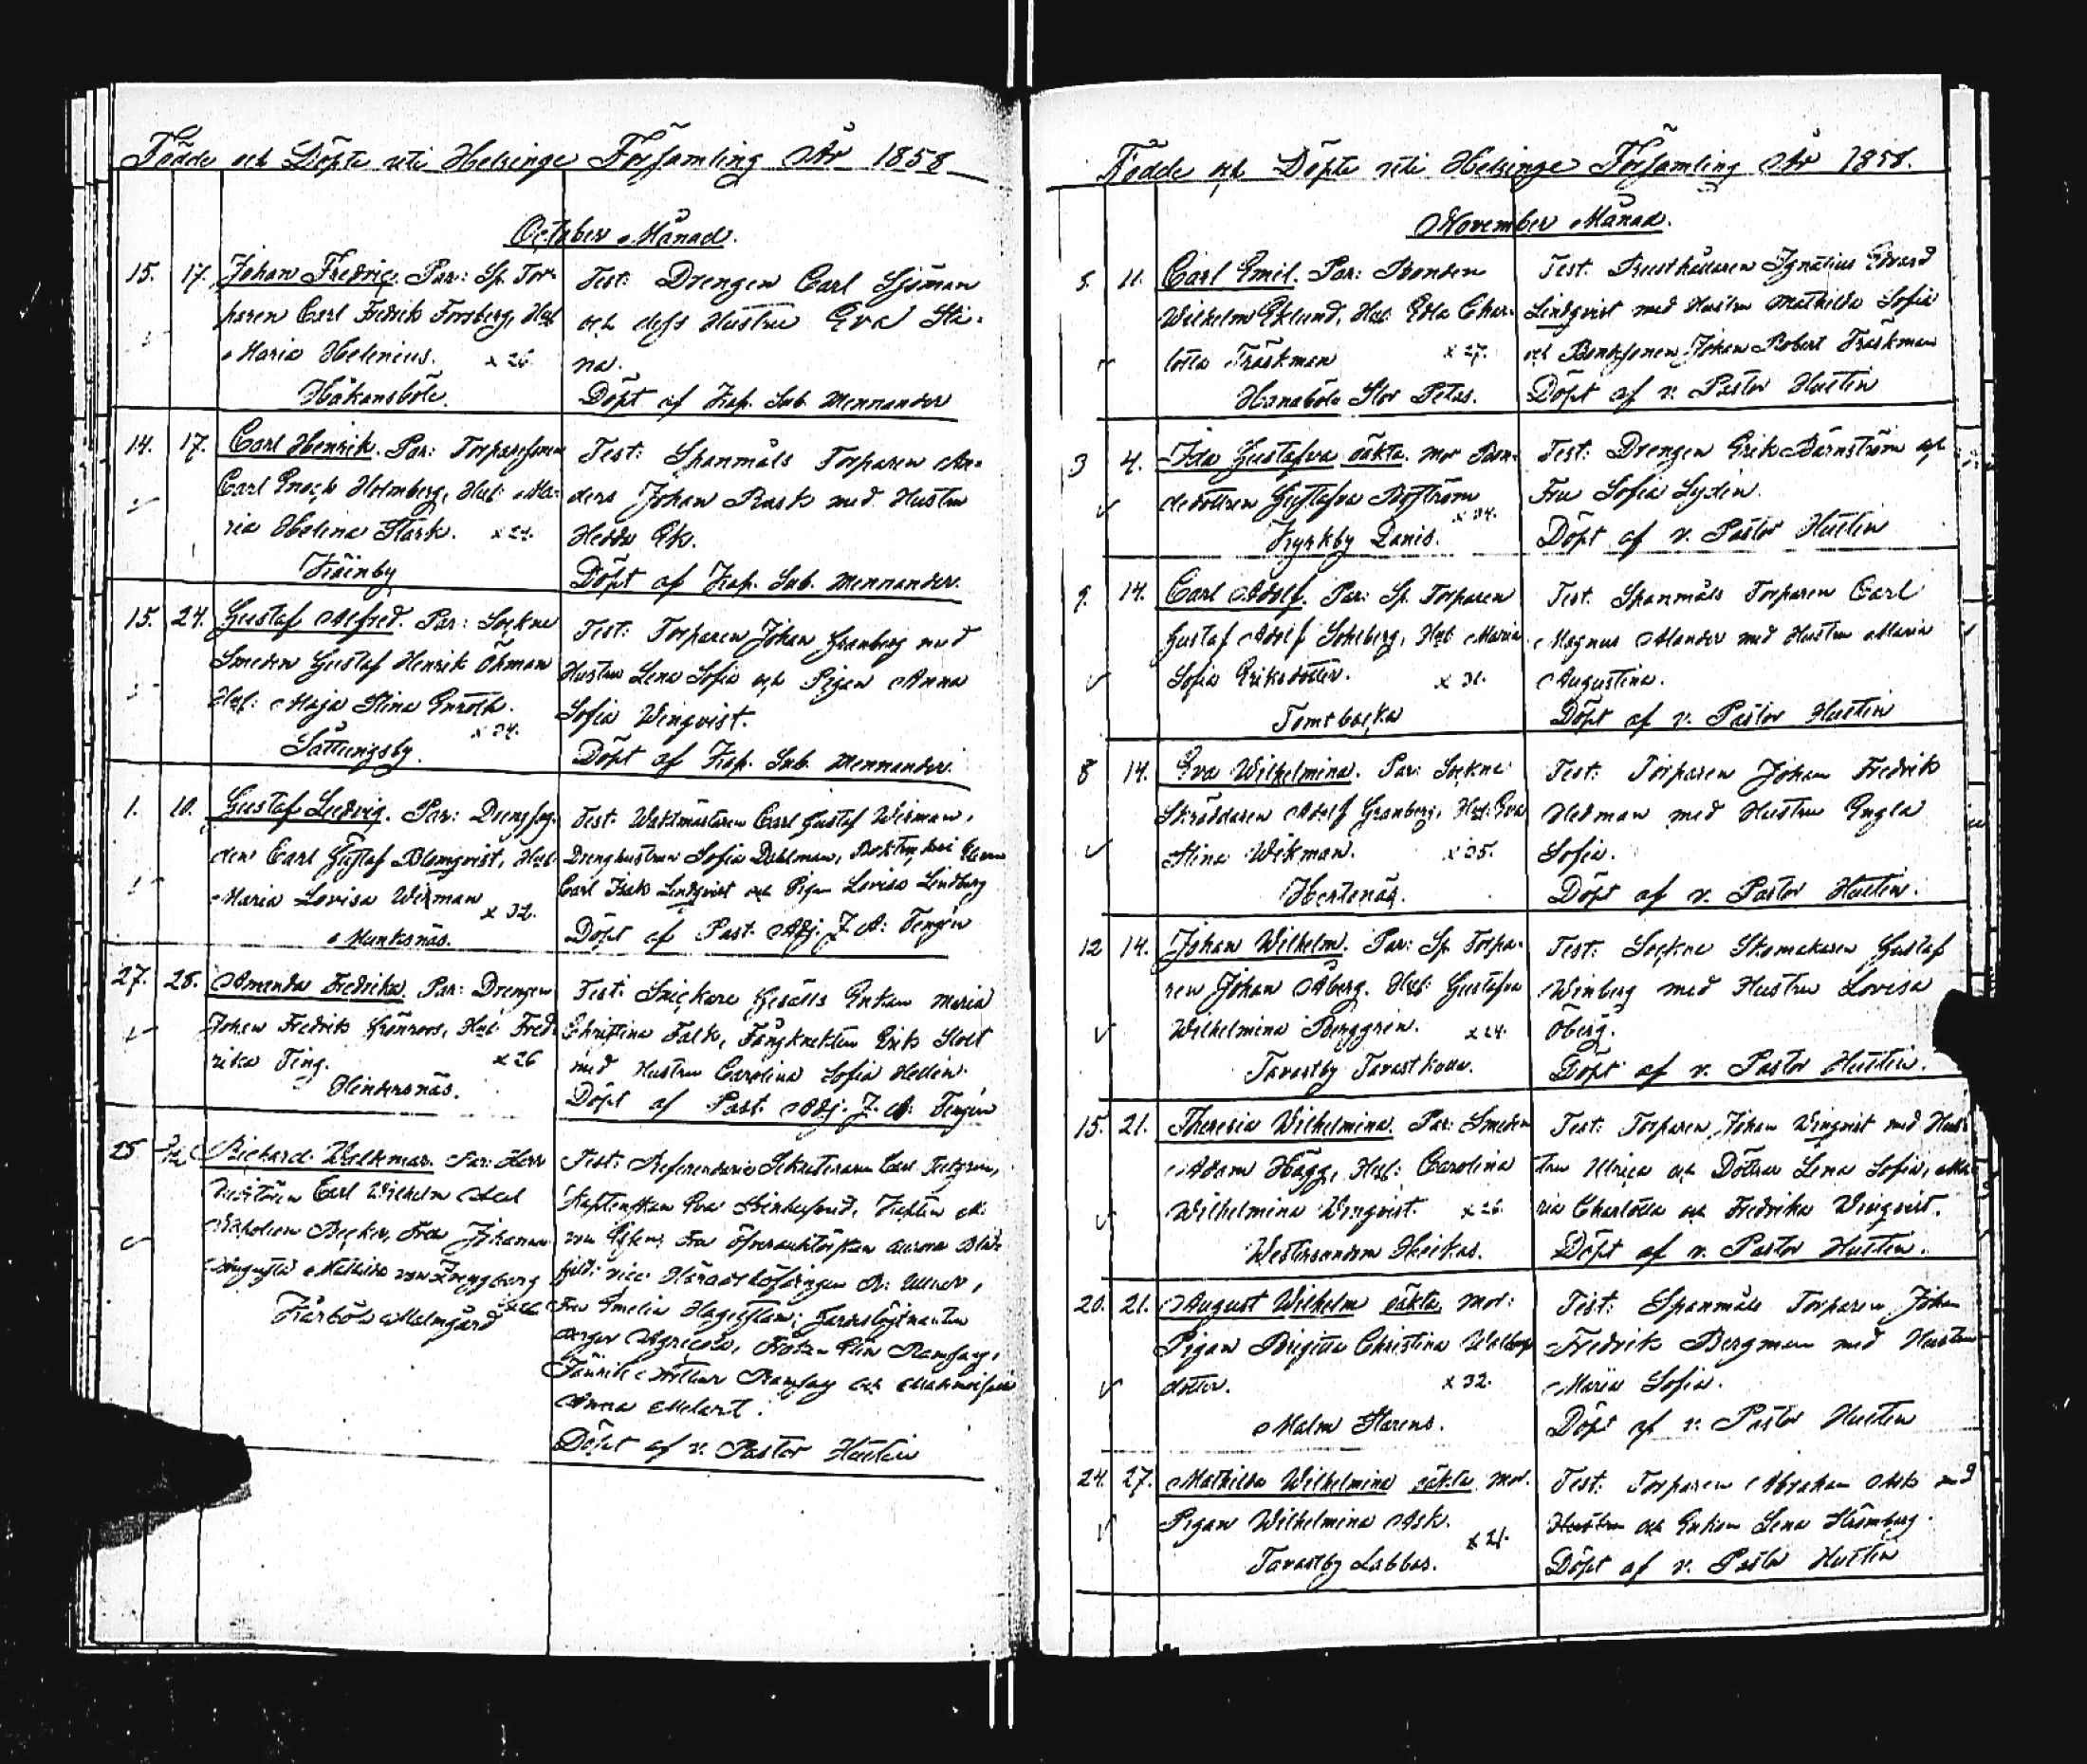 Födde och Döpte uti Helsinge Församling År 1858
October Månad.
15. 17. Johan Fredric. Par: Sp. Tor-
paren Carl Fedrik Forsberg, Hust
Maria Helenius. x 26.
Håkansböle.
Test: Drengen Carl Sjöman
och dess Hustru Eva Sti-
na.
Döpt af Kap. Sub. Mennander
14. 17. Carl Henrik. Par: Torparesonen
Carl Enoch Holmberg, Hust: Ma-
ria Helena Stark. x 24.
Test: Spanmåls Torparen An-
ders Johan Rask med Hustru
Hedda Ek.
Döpt af Kap. Sub. Mennander.
15. 24. Gustaf Alfred. Par: Sockne
Smeden Gustaf Henrik Öhman
Hust: Maja Stina Enroth.
x 34.
Sottungsby.
Test: Torparen Johan Granberg med
Hustru Lena Sofia och Pigan Anna
Sofia Winqvist.
Döpt af Kap. Sub. Mennander.
1. 10. Gustaf Ludvig. Par: Drengfog-
den Carl Gustaf Blomqvist, Hust
Maria Lovisa Wikman x 32.
Munksnäs.
Test: Waktmästaren Carl Gustaf Wikman,
Drenghustrun Sofia Dahlman,
Carl Isak Lindqvist och Pigan Lovisa Lindberg
Döpt af Past. Adj. J. A. Tengén
27. 28. Amanda Fredrika. Par: Drengen
Johan Fredrik Grönroos, Hust Fred-
rika Ting. x 26
Hindersnäs.
Test: Snickare Gesälls Enkan Maria
Christina Falk, Fångknekten Erik Stolt
med Hustru Carolina Sofia Hedin.
Döpt af Past. Adj. J. A. Tengén
25 Rickard Walkmar. Par: Herr
Carl Wilhelm Axel
Napoleon Becker, Fru Johanna
Augusta Mathilda von
Kårböle Malmgård
Test: Referendarie Sekreteraren Carl
Kaptenskan Eva Kaptén
von Fru Aurora
vice Häradshöfdingen
Fru Emelie
Agricola, Elin Ramsay,
Arthur Ramsay och
Anna Melart.
Döpt af v. Pastor Hustin
Födde och Döpte uti Helsinge Församling År 1858.
November Månad.
5. 11. Carl Emil. Par: Bonden
Wilhelm Eklund, Hust: Edla Char-
lotta Träskman x 27.
Hanaböle Stor Petas.
Test: Rusthållaren Ignatius Edvard
Lindqvist med Hustru Mathilda Sofia
och Bondesonen Johan Robert Träskman
Döpt af v. Pastor Hustin
3 4. Ida Gustafva oäkta. Mor Bon-
dedottren Gustafva Boström
x 34.
Kyrkby Danis.
Test: Drengen Erik Bärnström och
Fru Sofia Lydén.
Döpt af v. Pastor Hustin
9. 14. Carl Adolf. Par: Sp. Torparen
Gustaf Adolf Sohlberg, Hust Maria
Sofia Eriksdotter. x 31.
Tomtbacka
Test: Spanmåls Torparen Carl
Magnus Alander med Hustru Maria
Augustina.
Döpt af v. Pastor Hustin
8 14. Eva Wilhelmina. Par: Sockne
Skräddaren Adolf Granberg, Hust: Eva
Stina Wikman. x 35.
Hertonäs.
Test: Torparen Johan Fredrik
Hedman med Hustru Engla
Sofia.
Döpt af v. Pastor Hustin.
12 14. Johan Wilhelm. Par: Sp. Torpa-
ren Johan Åberg. Hust: Gustafva
Wilhelmina Berggrén. x 24.
Tavastby Tavastkulla.
Test: Sockne Skomakaren Gustaf
Winberg med Hustru Lovisa
Öberg.
Döpt af v. Pastor Hustin.
15. 21. Theresia Wilhelmina. Par: Smeden
Adam Hägg, Hust: Carolina
Wilhelmina Winqvist. x 26.
Westersundom Heikas.
Test: Torparen Johan Winqvist med Hus-
tru Ulrica och Döttrar Lena Sofia, Ma-
ria Charlotta och Fredrika Winqvist.
Döpt af v. Pastor Hustin.
20. 21. August Wilhelm oäkta. Mor:
Pigan Brigitta Christina
dotter. x 32.
Malm Starens.
Test: Spanmåls Torparen Johan
Fredrik Bergman med Hustru
Maria Sofia.
Döpt af v. Pastor Hustin
24. 27. Mathilda Wilhelmina oäkta. Mor.
Pigan Wilhelmina Ask.
x 21.
Tavastby Labbas.
Test: Torparen Abraham Ask med
Hustru och Enkan Lena Strömberg.
Döpt af v. Pastor Hustin